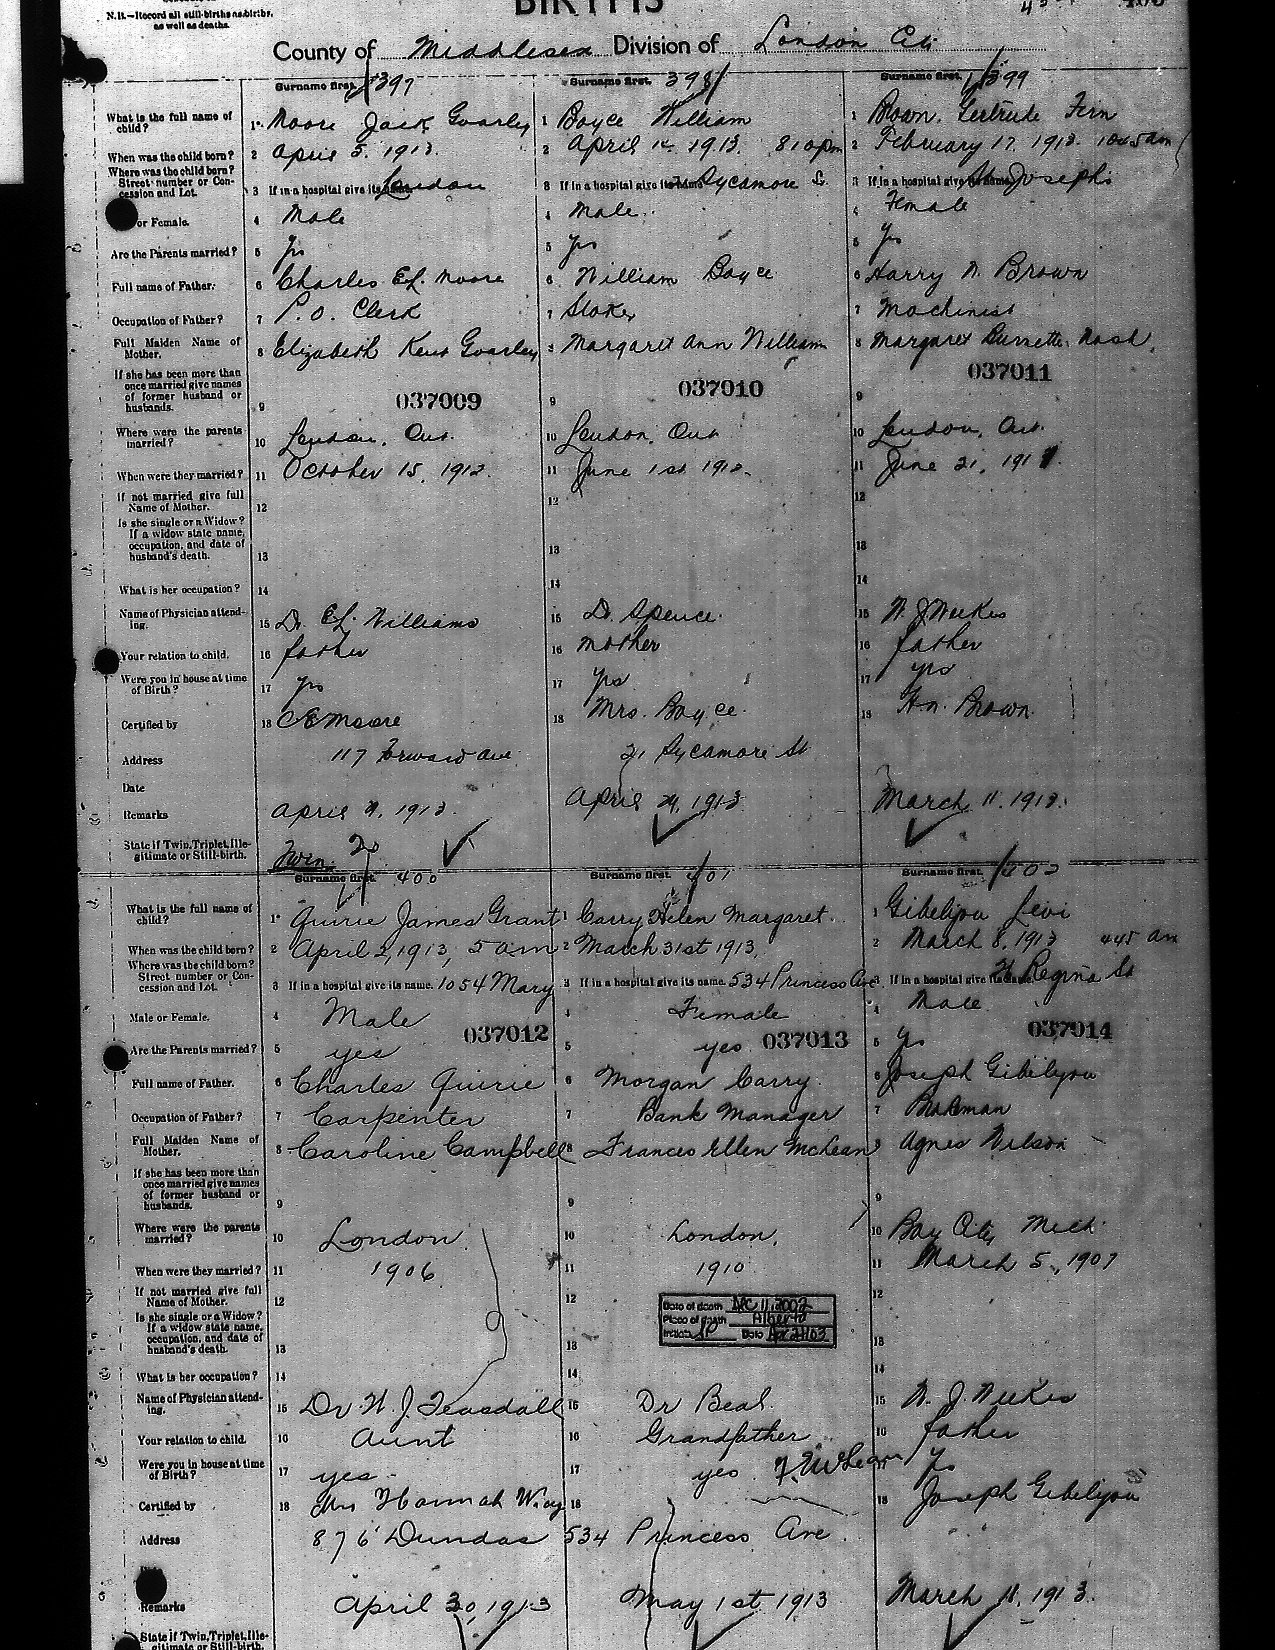 N.B.—Record all still-births as births,
as well as deaths.
BIRTHS
County of Middlesex Division of London City
Surname first. 397
Surname first. 398
Surname first. 399
What is the full name of child?
1 Moore Jack Gourley
1 Boyce William
1 Brown, Gertrude Fern
When was the child born?
2 April 5. 1913.
2 April 14 1913. 8 10 pm
2 February 17. 1913. 10 45 am
Where was the child born? Street number or Concession and Lot.
3 If in a hospital give its name London
3 If in a hospital give its name 21 Sycamore St
3 If in a hospital give its name St Josephs
or Female.
4 Male
4 Male
4 Female
Are the Parents married?
5 yes
5 yes
5 yes
Full name of Father.
6 Charles Ed. Moore
6 William Boyce
6 Harry N. Brown
Occupation of Father?
7 P. O. Clerk
7 Stoker
7 Machinist
Full Maiden Name of Mother.
8 Elizabeth Kent Gourley
8 Margaret Ann William
8 Margaret Burnette Nash
If she has been more than once married give names of former husband or husbands.
9 037009
9 037010
9 037011
Where were the parents married?
10 London, Ont.
10 London, Ont
10 London, Ont.
When were they married?
11 October 15, 1912
11 June 1st 1912
11 June 21, 1911
If not married give full Name of Mother.
12
12
12
Is she single or a Widow? If a widow state name, occupation, and date of husband's death.
13
13
13
What is her occupation?
14
14
14
Name of Physician attending.
15 Dr. Ed. Williams
15 Dr. Spence
15 W. J. Weekes
Your relation to child.
16 father
16 mother
16 father
Were you in house at time of Birth?
17 yes
17 yes
17 yes
Certified by
18 C E Moore
18 Mrs. Boyce.
18 H. N. Brown
Address
117 Forward Ave
21 Sycamore St
Date
Remarks
April 9, 1913.
April 24, 1913
March 11. 1913.
State if Twin, Triplet, Illegitimate or Still-birth.
Twin 2
Surname first. 400
Surname first. 401
Surname first. 402
What is the full name of child?
1 Quirie James Grant
1 Carry Helen Margaret.
1 Gibelyou Levi
When was the child born?
2 April 2, 1913, 5 a.m
2 March 31st 1913,
2 March 8, 1913 4 45 am
Where was the child born? Street number or Concession and Lot.
3 If in a hospital give its name. 1054 Mary
3 If in a hospital give its name. 534 Princess Ave
3 If in a hospital give its name Regina St
Male or Female.
4 Male
4 Female
4 Male
037012
037013
037014
Are the Parents married?
5 yes
5 yes
5 yes
Full name of Father.
6 Charles Quirie
6 Morgan Carry
6 Joseph Gibelyou
Occupation of Father?
7 Carpenter
7 Bank Manager
7 Brakman
Full Maiden Name of Mother.
8 Caroline Campbell
8 Frances Ellen McLean
8 Agnes Wilson
If she has been more than once married give names of former husband or husbands.
9
9
9
Where were the parents married?
10 London
10 London,
10 Bay City, Mich.
When were they married?
11 1906
11 1910
11 March 5, 1907
If not married give full Name of Mother.
12
12
12
Is she single or a Widow? If a widow state name, occupation, and date of husband's death.
13
13
13
Date of death DEC 11, 2002
Place of death Alberta
Initials Date Apr 24/03
What is her occupation?
14
14
14
Name of Physician attending.
15 Dr. W. J. Teasdall
15 Dr Beal.
15 W. J. Weekes
Your relation to child.
16 aunt
16 Grandfather
16 father
Were you in house at time of Birth?
17 yes
17 yes
17 yes
Certified by
18 Mrs Hannah Way
18 McLean
18 Joseph Gibelyou
Address
876 Dundas
534 Princess Ave
Remarks
April 30, 1913
May 1st 1913
March 11, 1913.
State if Twin, Triplet, Ille-
gitimate or Still-birth.